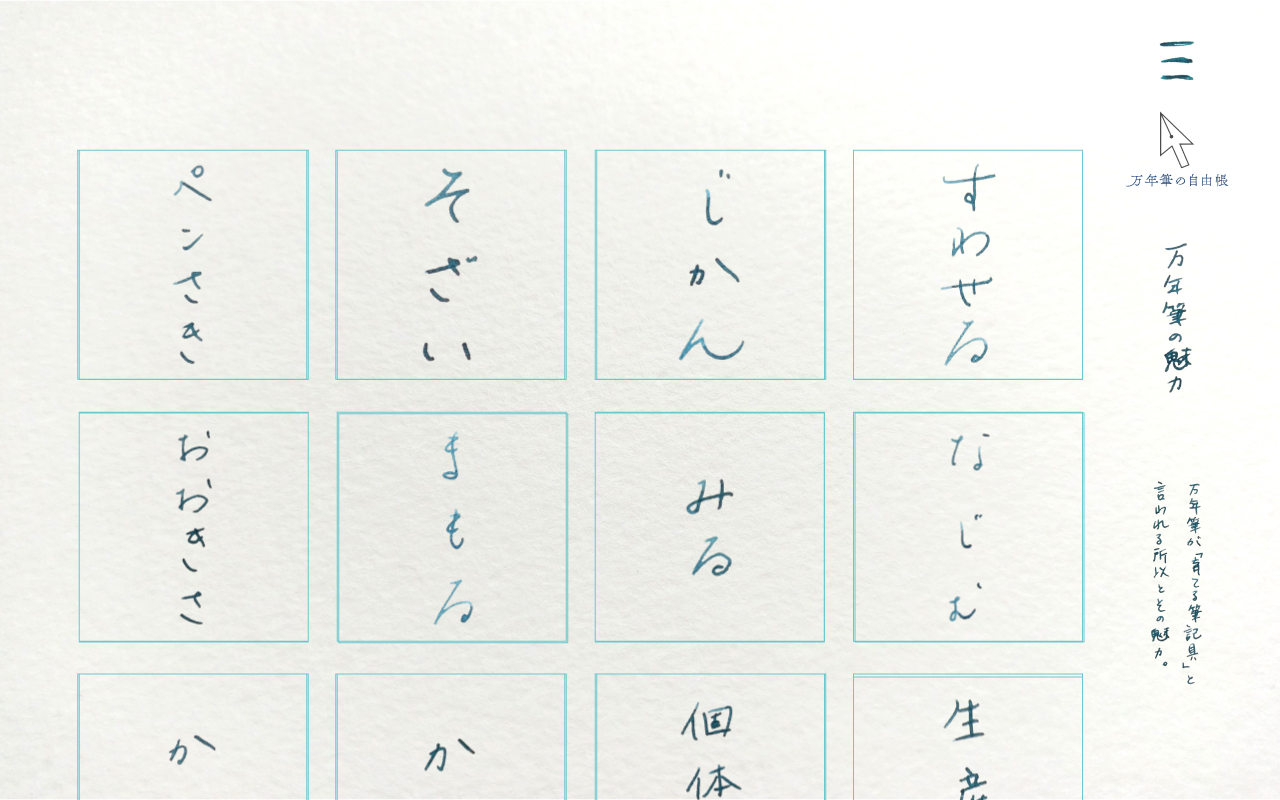 万年筆の自由帳
万年筆の魅力
万年筆が「育てる筆記具」と
言われる所以とその魅力。
すわせる
じかん
そざい
ペンさき
なじむ
みる
まもる
おおきさ
生産
個体
か
か